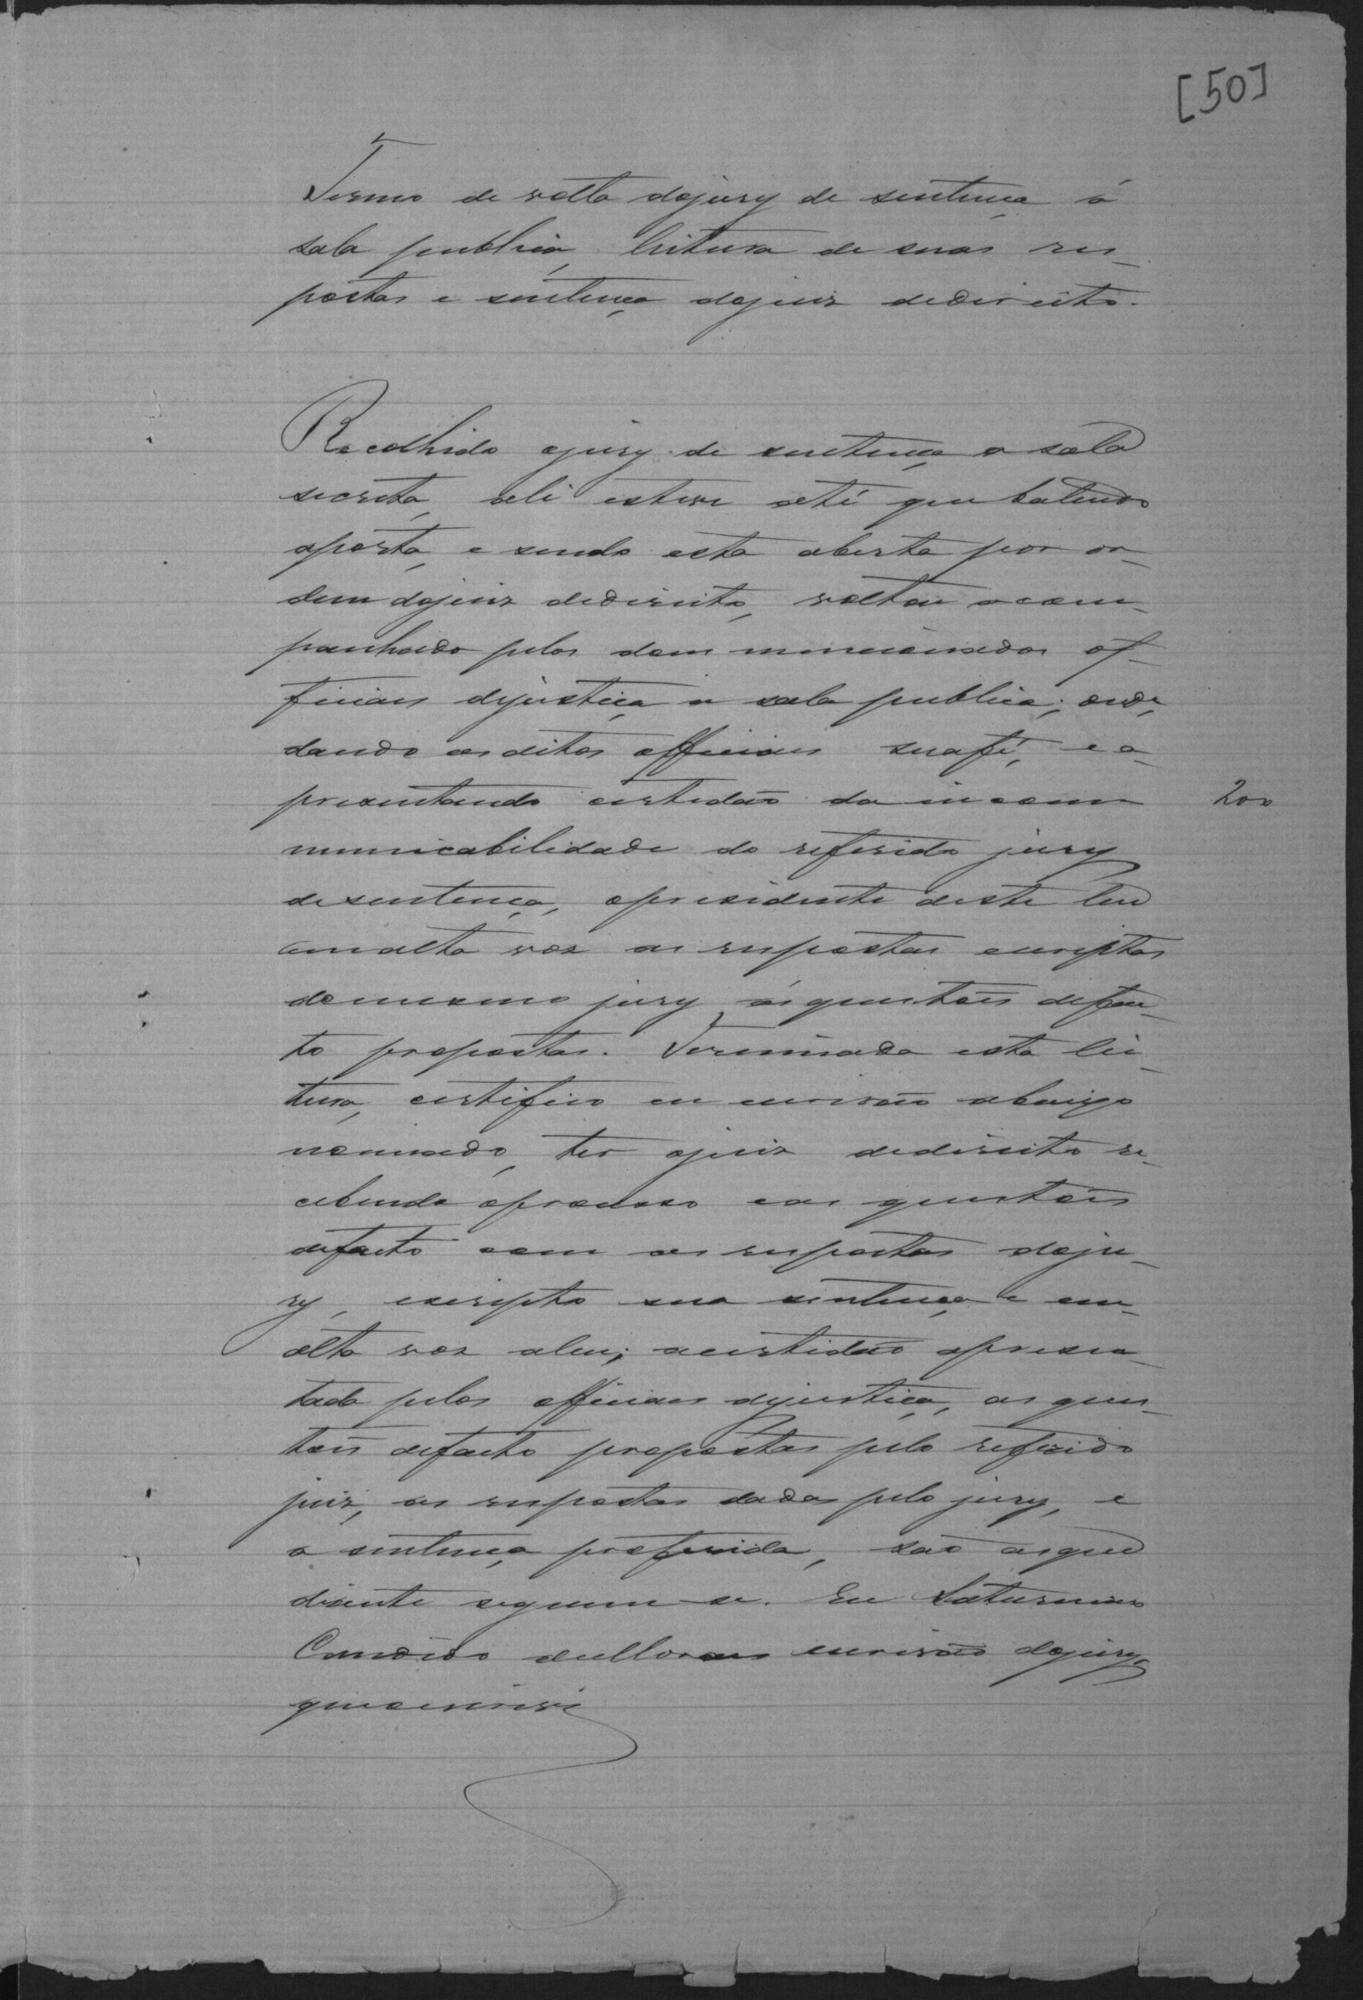 [50]
Termo de volta dojury de sentença á
sala publica, leitura de suas res-
postas e sentença dojuiz dedireito.
Recolhido ojury de sentença a sala
secreta, ali esteve até que batendo
aporta, e sendo esta aberta por or-
dem dojuiz dedireito, voltou acom-
panhado pelos dous mencionados of-
ficiaes dejustiça a sala publica; onde,
dando os ditos officiaes suafé, e a-
presentando certidão da incom
200
municabilidade do referido jury
desentença, opresidente deste leu
emalta voz as respostas escriptas
domesmo jury ás questões defac-
to propostas. Terminada esta lei-
tura, certifico eu escrivão abaixo
nomeado, ter ojuiz dedireito re-
cebendo oprocesso eas questões
defacto com as respostas doju-
ry, escripto sua sentença e em
alta voz aleu; acertidão apresen-
tada pelos officiaes dejustiça, as ques-
tões defacto propostas pelo referido
juiz, as respostas dadas pelo jury, e
a sentença proferida, são asque
diante seguem-se. Eu Saturnino
Candido deMoraes escrivão dojury
queoescrevi